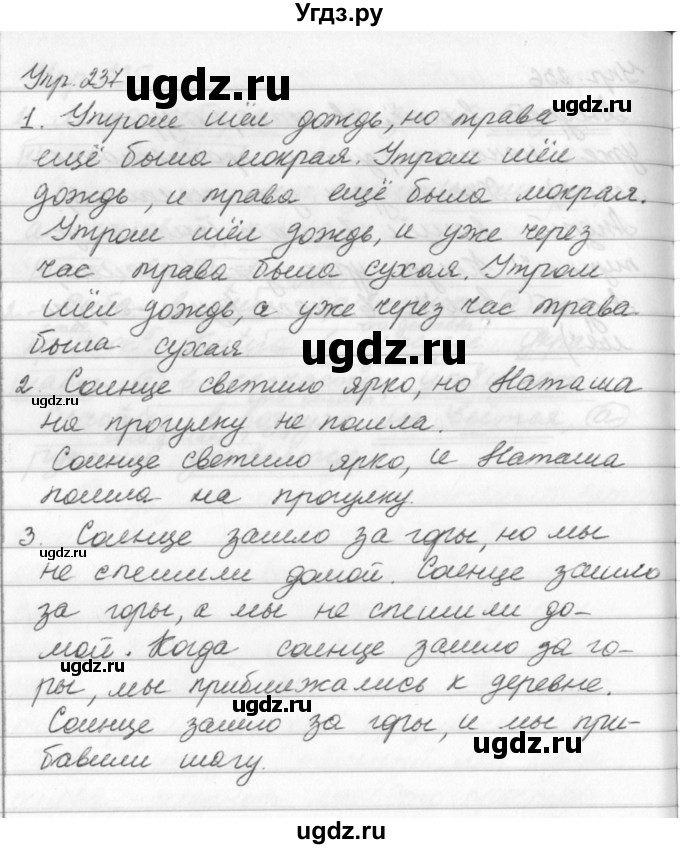 Угдз.ру
Упр. 237
ugdz.ru
ugdz.ru
1. Утром шёл дождь, но трава
ещё была мокрая. Утром шёл
дождь, и трава ещё была мокрая.
Утром шёл дождь, и уже через
час трава была сухая. Утром
шёл дождь, а уже через час трава
была сухая
ugdz.ru
2. Солнце светило ярко, но Наташа
ugdz.ru
на прогулку не пошла.
Солнце светило ярко, и Наташа
пошла на прогулку.
3. Солнце зашло за горы, но мы
ugdz.ru
не спешили домой. Солнце зашло
за горы, а мы не спешили до-
мой. Когда солнце зашло за го-
ugdz.ru
ры, мы приближались к деревне.
Солнце зашло за горы, и мы при-
ugdz.ru
бавили шагу.
ugdz.ru